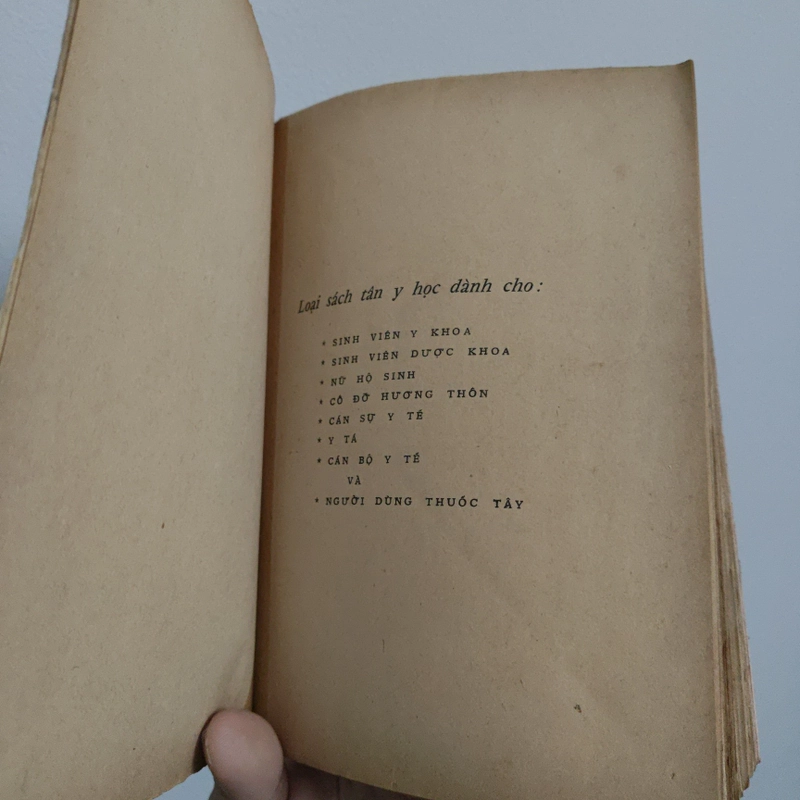 Loại sách tân y học dành cho:
* SINH VIÊN Y KHOA
* SINH VIÊN DƯỢC KHOA
* NỮ HỘ SINH
* CÔ ĐỠ HƯƠNG THÔN
* CÁN SỰ Y TẾ
* Y TÁ
* CÁN BỘ Y TẾ
VÀ
* NGƯỜI DÙNG THUỐC TÂY